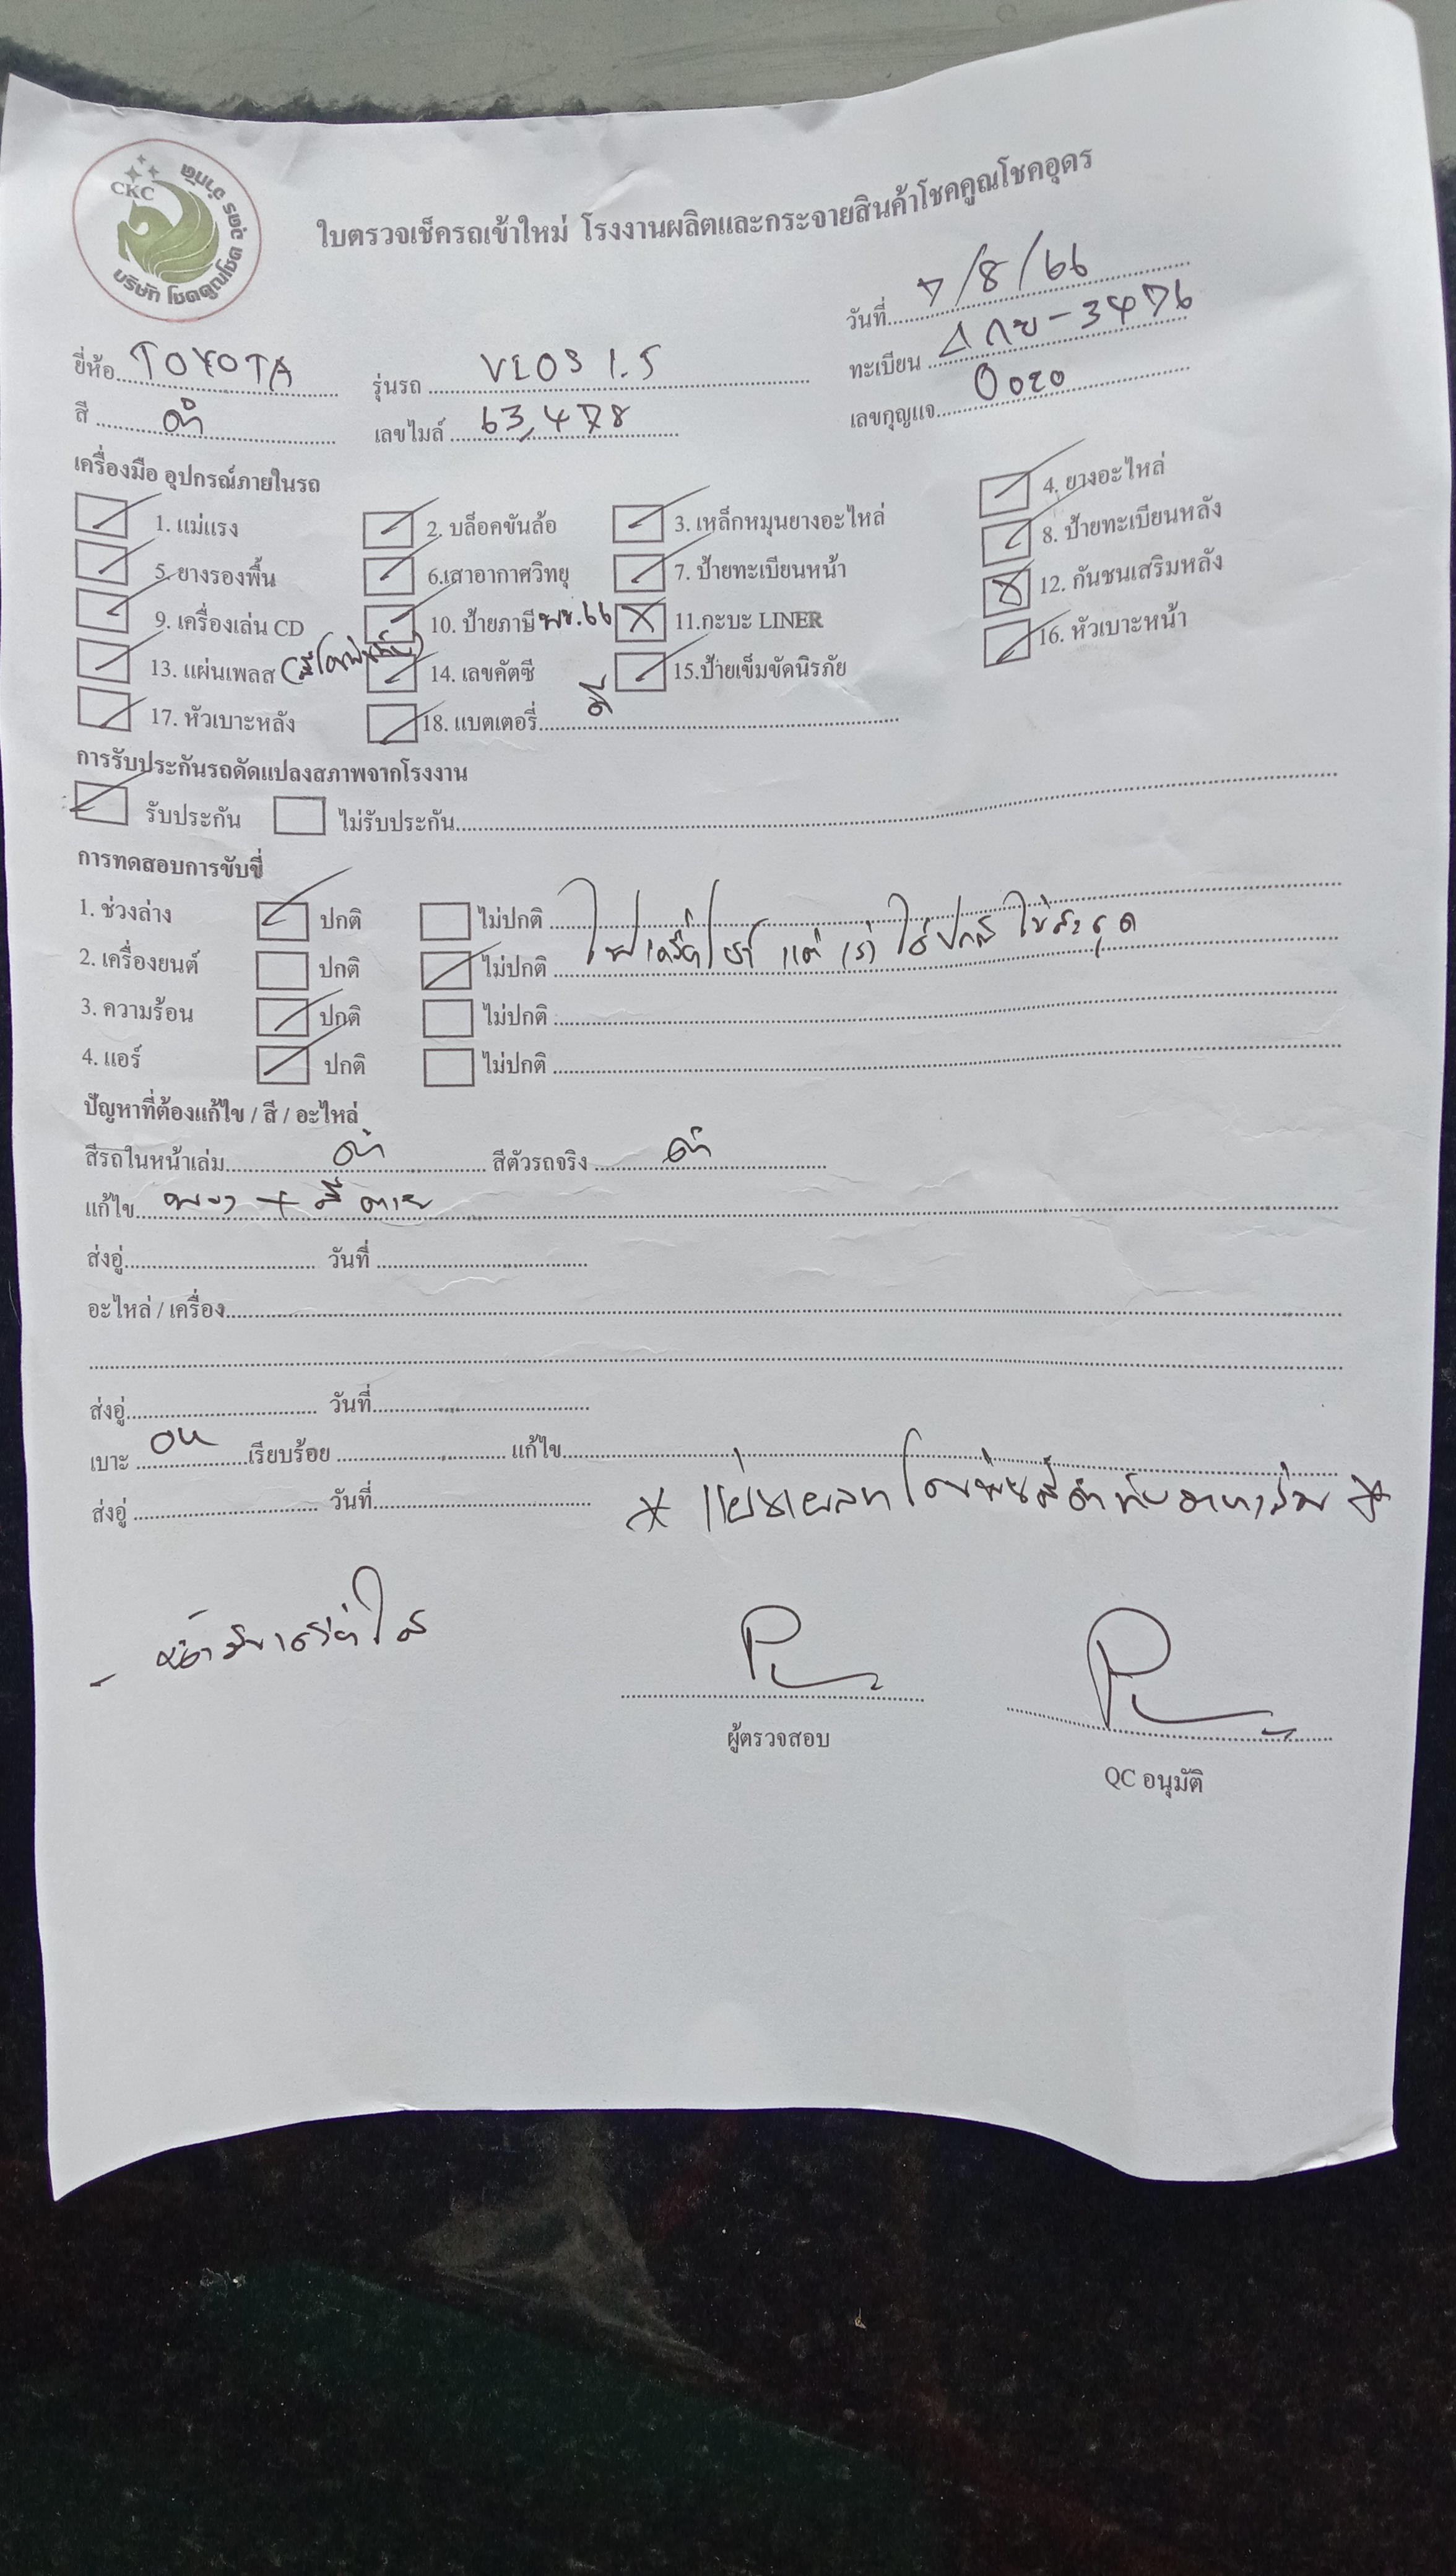 CKC
บริษัท โชคคูณโชค อุดร จำกัด
ใบตรวจเช็ครถเข้าใหม่ โรงงานผลิตและกระจายสินค้าโชคคูณโชคอุดร
วันที่ 7/8/66
ยี่ห้อ TOYOTA รุ่นรถ VIOS 1.5 ทะเบียน 3476
สี ดำ เลขไมล์ 63,478 เลขกุญแจ 0020
เครื่องมือ อุปกรณ์ภายในรถ
1. แม่แรง 2. บล็อคขันล้อ 3. เหล็กหมุนยางอะไหล่ 4. ยางอะไหล่
5. ยางรองพื้น 6.เสาอากาศวิทยุ 7. ป้ายทะเบียนหน้า 8. ป้ายทะเบียนหลัง
9. เครื่องเล่น CD 10. ป้ายภาษี พย.66 11.กะบะ LINER 12. กันชนเสริมหลัง
13. แผ่นเพลส 14. เลขคัตซี 15.ป้ายเข็มขัดนิรภัย 16. หัวเบาะหน้า
17. หัวเบาะหลัง 18. แบตเตอรี่ ดี
การรับประกันรถดัดแปลงสภาพจากโรงงาน
รับประกัน ไม่รับประกัน
การทดสอบการขับขี่
1. ช่วงล่าง ปกติ ไม่ปกติ
2. เครื่องยนต์ ปกติ ไม่ปกติ ไฟเครื่องโชว์ แต่ เร่งได้ปกติ ไม่สะดุด
3. ความร้อน ปกติ ไม่ปกติ
4. แอร์ ปกติ ไม่ปกติ
ปัญหาที่ต้องแก้ไข / สี / อะไหล่
สีรถในหน้าเล่ม ดำ สีตัวรถจริง ดำ
แก้ไข
ส่งอู่ วันที่
อะไหล่ / เครื่อง
ส่งอู่ วันที่
เบาะ OK เรียบร้อย แก้ไข
ส่งอู่ วันที่ * แผ่นเพลท โดนพ่นสีดำทับ *
ผู้ตรวจสอบ
QC อนุมัติ